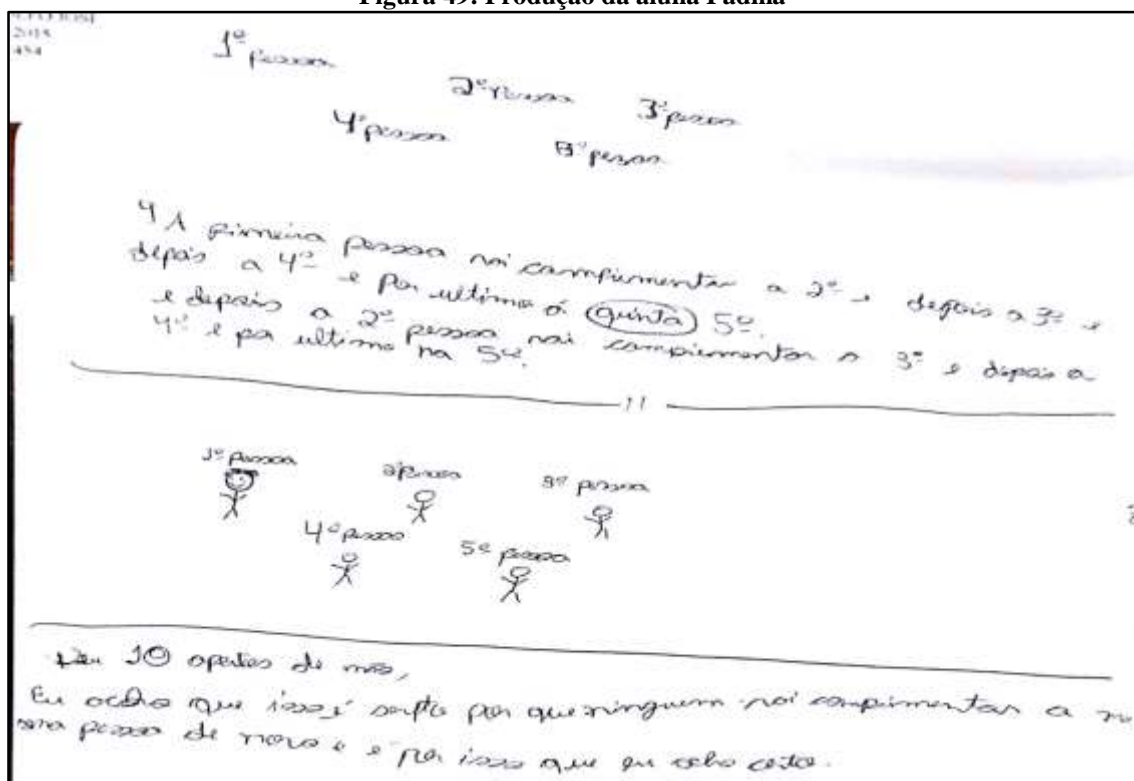 Figura 49: Produção da aluna Padma
2015
454
1ª pessoa
2ª pessoa
3ª pessoa
4ª pessoa
5ª pessoa
4 A pimeira pessoa vai compiementar a 2ª e depois a 3ª e
depois a 4ª e por ultimo a quinta 5ª.
e depois a 2ª pessoa vai compiementar a 3ª e depois a
4ª e por ultimo na 5ª.
11
1ª pessoa
2ª pessoa
3ª pessoa
4ª pessoa
5ª pessoa
10 apertos de mão,
Eu acho que isso é por que ninguem vai compimentar a
pessoa de novo e e por isso que eu acho certo.